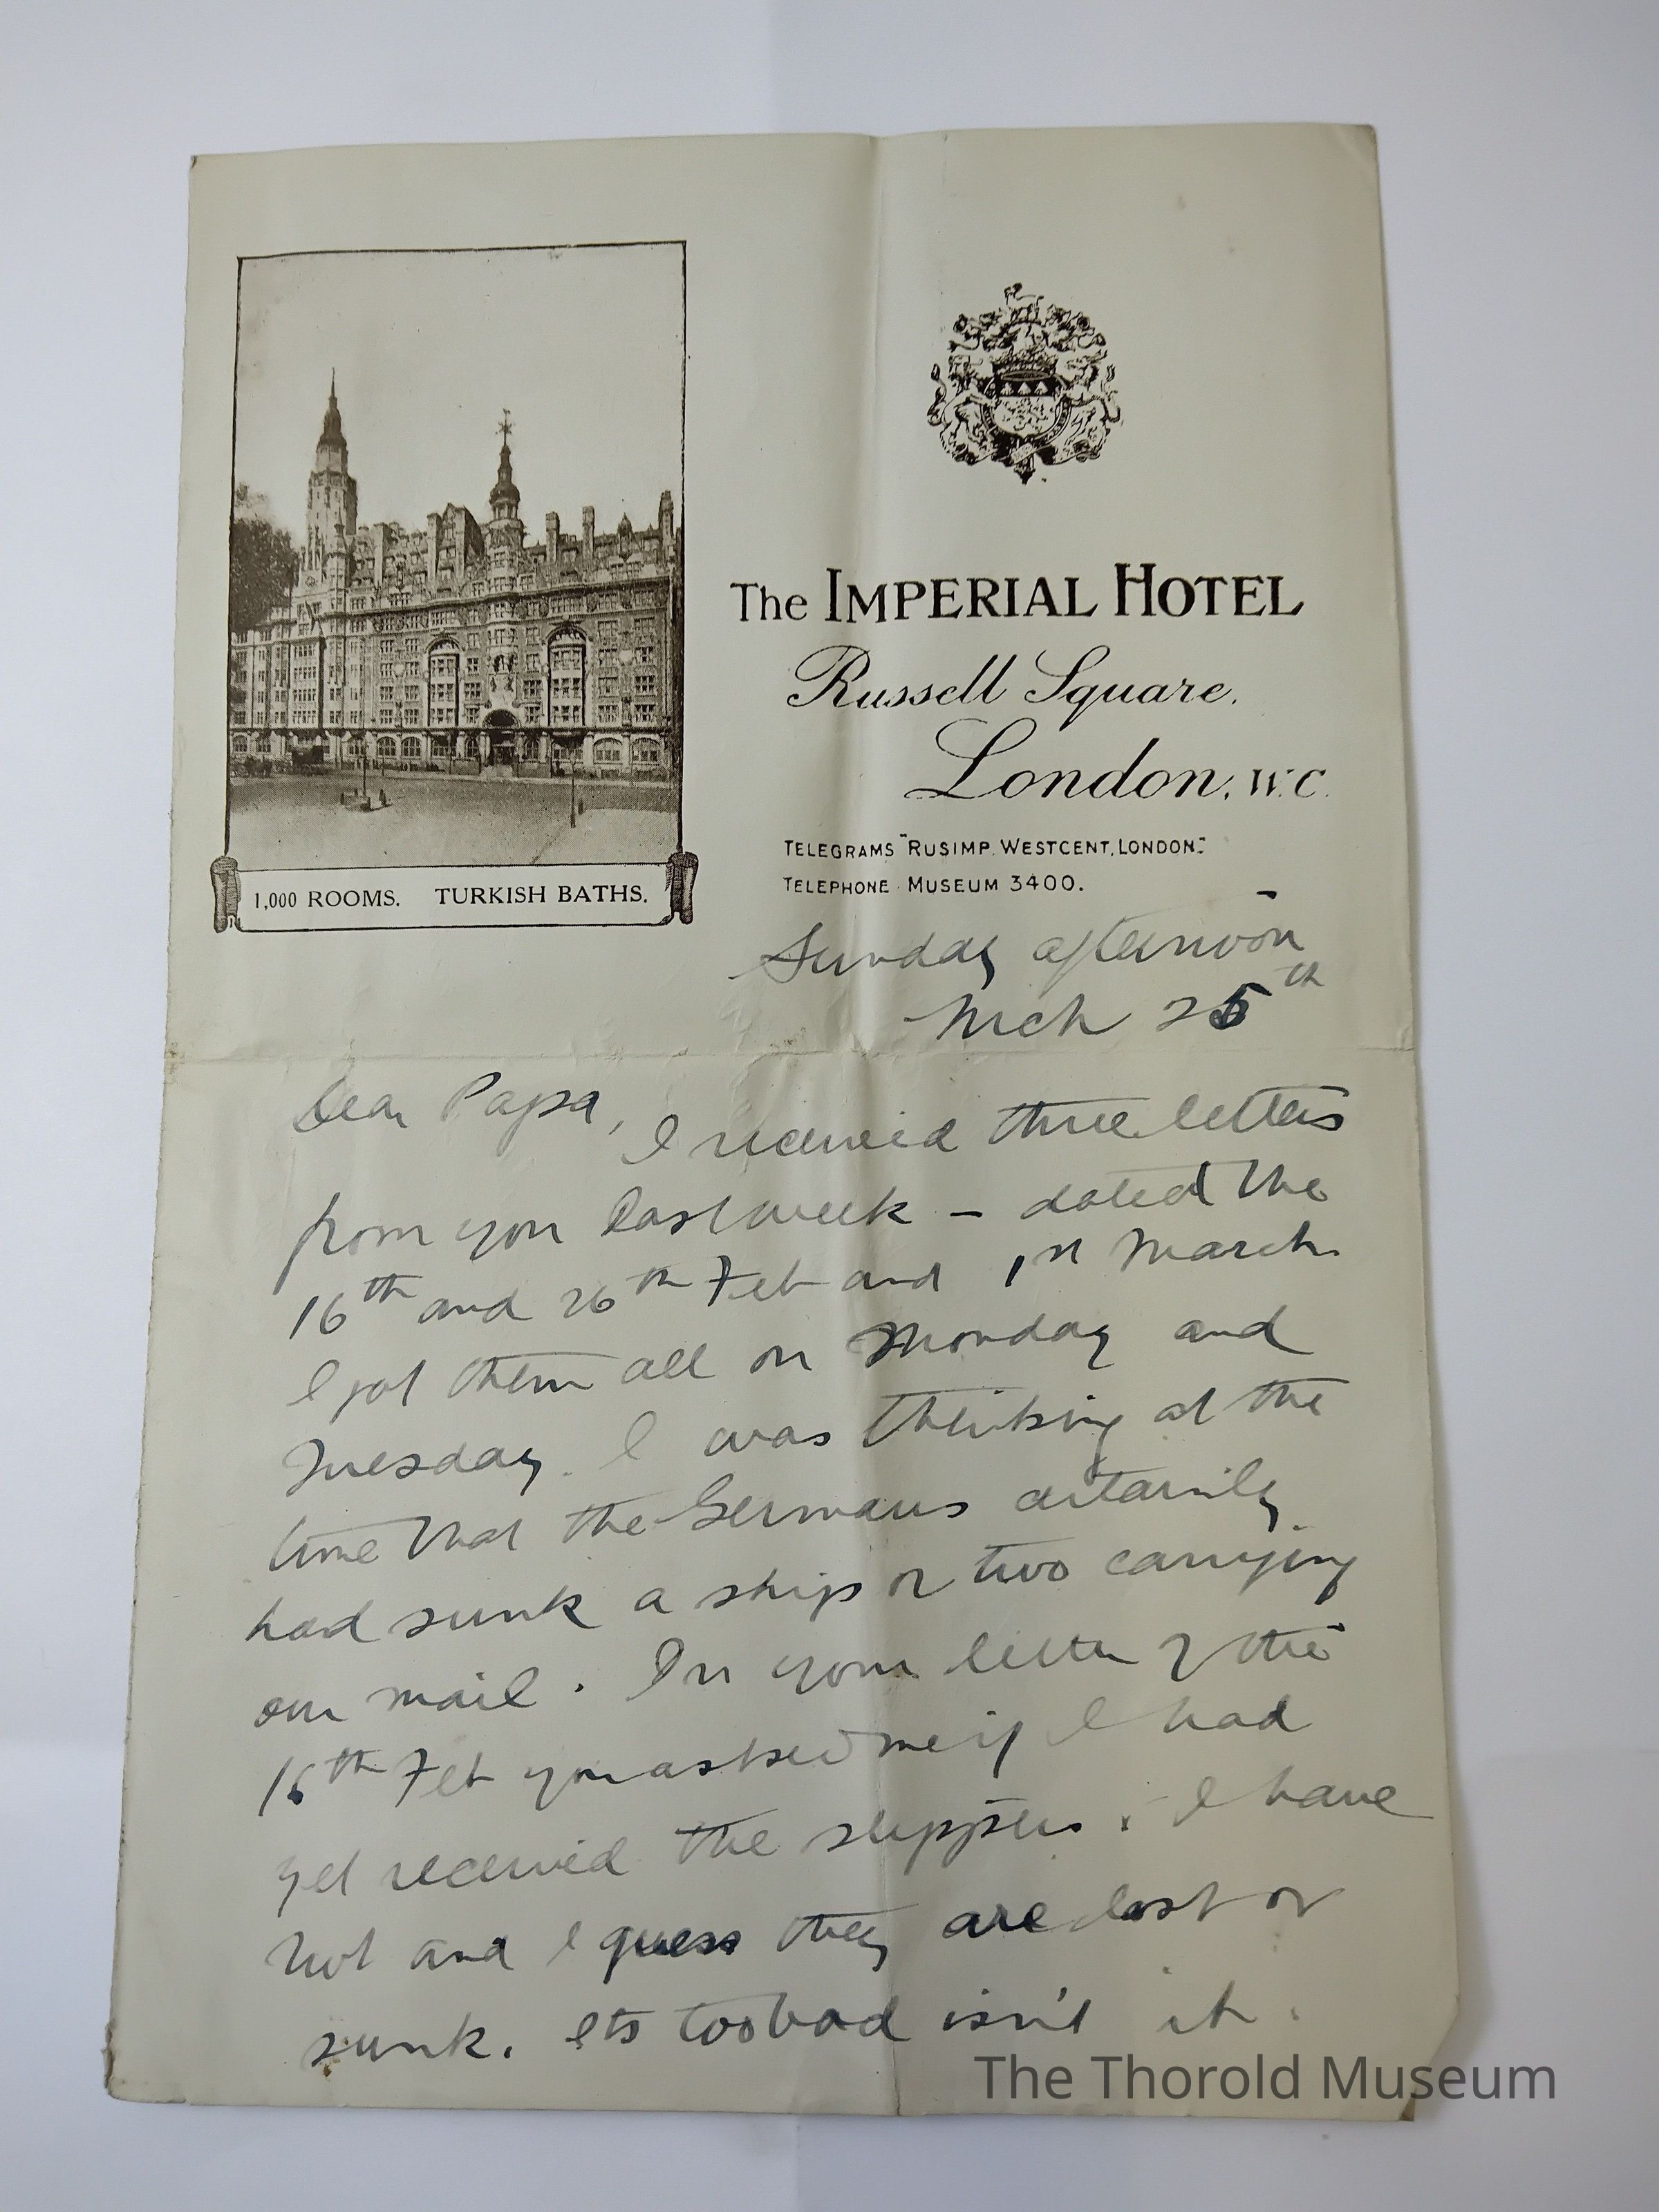 The IMPERIAL HOTEL
Russell Square,
London, W.C.
TELEGRAMS "RUSIMP. WESTCENT, LONDON."
TELEPHONE MUSEUM 3400.
1,000 ROOMS. TURKISH BATHS.
Sunday afternoon
Mch 25th
Dear Papa,
I received three letters
from you last week – dated the
16th and 26th Feb and 1st March
I got them all on Monday and
Tuesday. I was thinking at the
time that the Germans certainly
had sunk a ship or two carrying
our mail. In your letter of the
16th Feb you asked me if I had
yet received the slippers. I have
not and I guess they are lost or
sunk. Its too bad isn't it.
The Thorold Museum